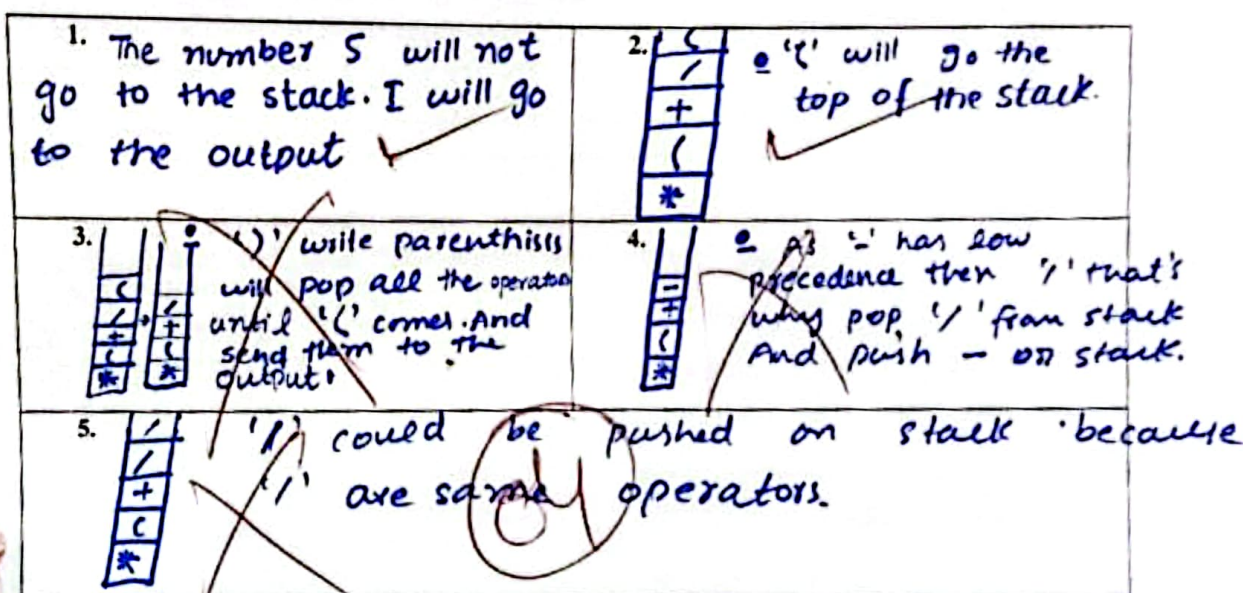 1. The number 5 will not
go to the stack. I will go
to the output
2. (
/
+
(
*
• '(' will go the
top of the stack.
3. (
/
+
(
*
/
+
(
*
• ')' write parenthisis
will pop all the operators
until '(' comes. And
send them to the
output.
4. -
+
(
*
• As '-' has low
precedence then '/' that's
why pop '/' from stack
And push - on stack.
5. /
/
+
(
*
'/' could be pushed on stack because
'/' are same operators.
04